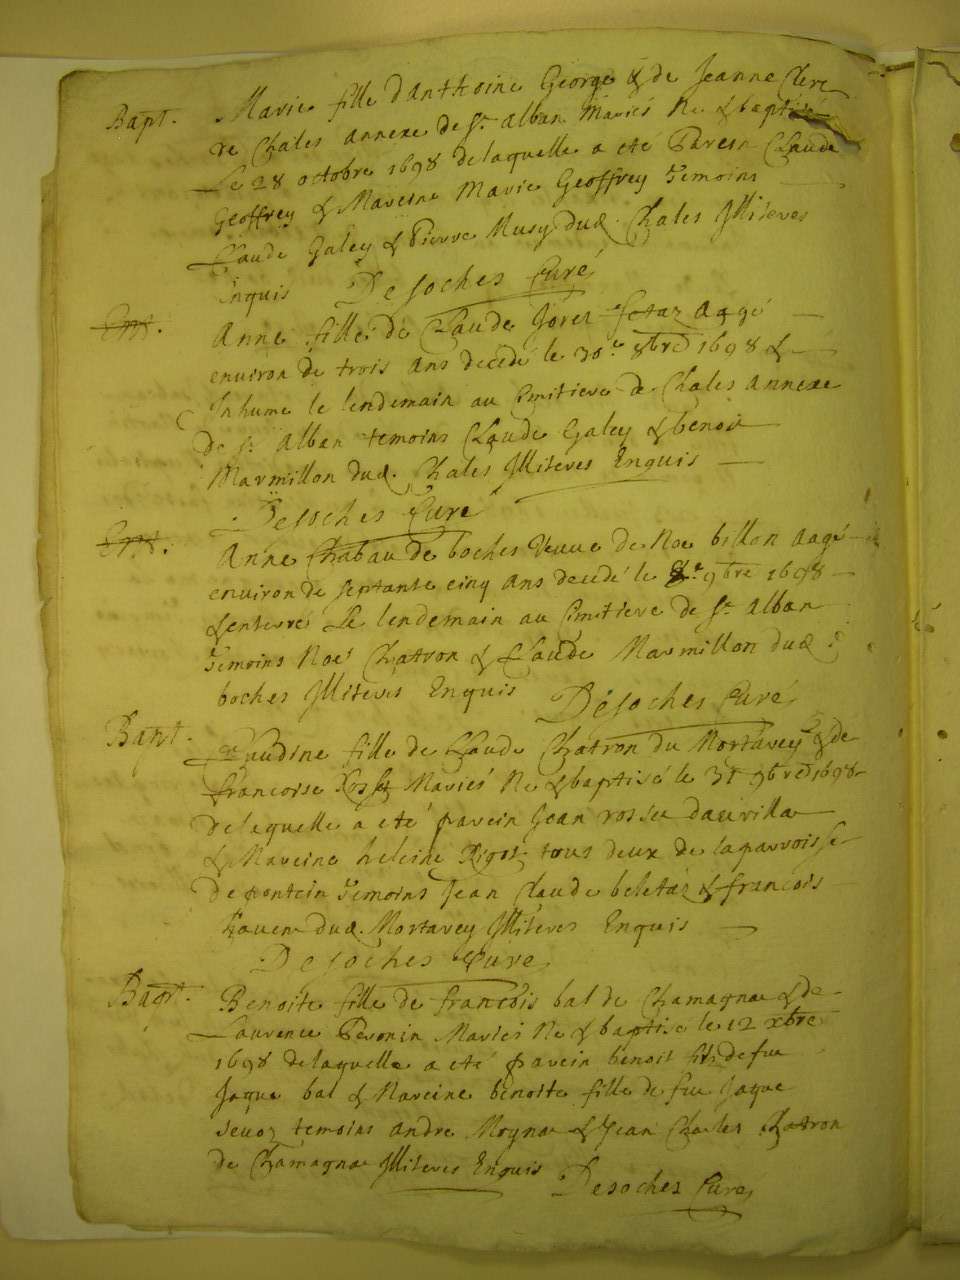 Bapt. Marie fille d'Anthoine George & de Jeanne Clere
de Chales annexe de St. Alban Mariés Ne & baptisé
Le 28 octobre 1698 de laquelle a eté Parein Claude
Geoffrey & Mareine Marie Geoffrey Temoins
Claude Galey & Pierre Musy dud. Chales Illiteres
Enquis Desoches Curé
Ent. Anne fille de Claude aagé
environ de trois ans decedé le 30e 8bre 1698 &
Inhume le lendemain au Cimitiere de Chales annexe
De St Alban temoins Claude Galey & benoit
Marmillon dud. Chales Illiteres Enquis
Desoches Curé
Ent. Anne Chabau de boches Veuve de Noe billon aagé
environ de septante cinq ans decedé le 9bre 1698
& enterré Le lendemain au Cimitiere de St. Alban
Temoins Noe Chatron & Claude Marmillon dud
boches Illiteres Enquis Desoches Curé
Bapt. Claudine fille de Claude Chatron du Mortarey & de
francoise Mariés Ne & baptisé le 9bre 1698
De laquelle a eté parein Jean rosset
& Mareine heleine Rigot tous deux de la parroisse
De pontein Temoins Jean Claude beletaz & francois
dud. Mortarey Illiteres Enquis
Desoches Curé
Bapt. Benoite fille de francois bal de Chamagna & de
Laurence Peronin Mariés Ne & baptisé le 12 xbre
1698 de laquelle a eté parein benoit fils de fue
Jaque bal & Mareine benoite fille de fue Jaque
sevoz temoins andre Moyna & Jean Charles Chatron
de Chamagna Illiteres Enquis Desoches Curé